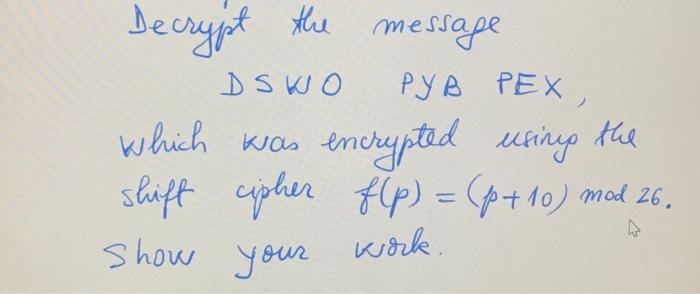 Decrypt the message
DSWO PYB PEX,
which was encrypted using the
shift cipher f(p) = (p+10) mod 26.
Show your work.